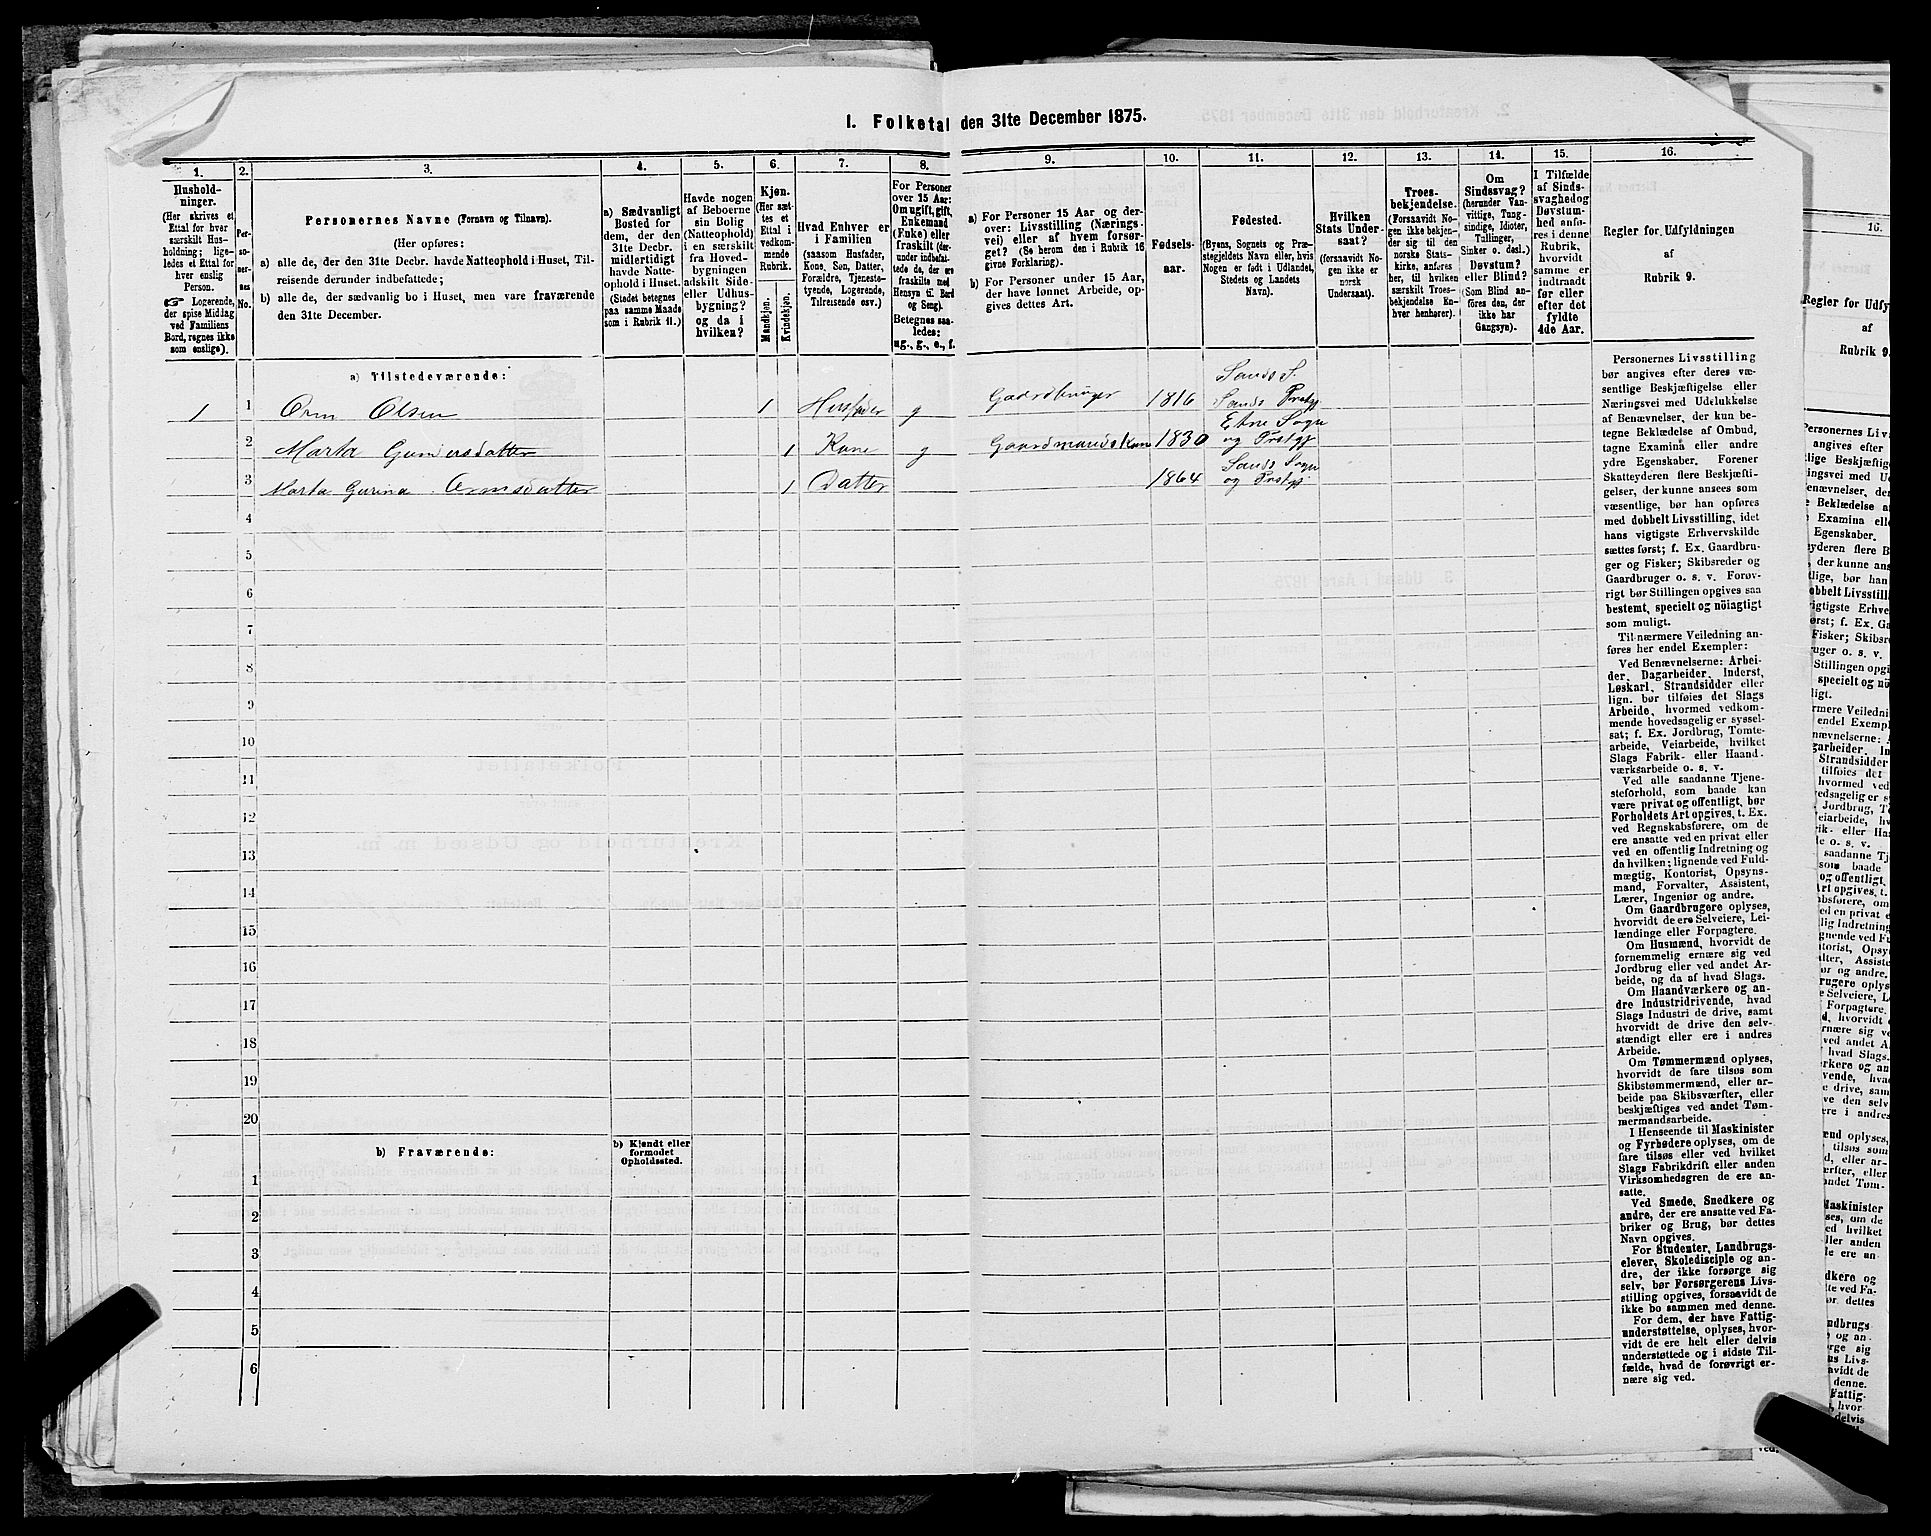 I. Folketal den 31te December 1875.
1.
2.
3.
4.
5.
6.
7.
8.
9.
10.
11.
12.
13.
14.
15.
16.
Hushold-
ninger.
(Her skrives et
Ettal for hver
særskilt Hus-
holdning; lige-
ledes et Ettal for
hver enslig
Person.
☞ Logerende,
der spise Middag
ved Familiens
Bord, regnes ikke
som enslige).
Per-
so-
ner-
nes
No.
Personernes Navne (Fornavn og Tilnavn).
(Her opføres:
a) alle de, der den 31te Decbr. havde Natteophold i Huset, Til-
reisende derunder indbefattede;
b) alle de, der sædvanlig bo i Huset, men vare fraværende
den 31te December.
a) Sædvanligt
Bosted for
dem, der den
31te Decbr.
midlertidigt
havde Natte-
ophold i Huset.
(Stedet betegnes
paa samme Maade
som i Rubrik 11.)
Havde nogen
af Beboerne
sin Bolig
(Natteophold)
i en særskilt
fra Hoved-
bygningen
adskilt Side-
eller Udhus-
bygning?
og da i
hvilken?
Kjøn.
(Her sæt-
tes et
Ettal i
vedkom-
mende
Rubrik.
Mandkjøn.
Kvindekjøn.
Hvad Enhver er
i Familien
(saasom Husfader,
Kone, Søn, Datter,
Forældre, Tjeneste-
tyende, Logerende,
Tilreisende osv.)
For Personer
over 15 Aar:
Om ugift, gift,
Enkemand
(Enke) eller
fraskilt (der-
under indbefat-
tede de, der ere
fraskilte med
Hensyn til Bord
og Seng).
Betegnes saa-
ledes:
ug., g., e., f.
a) For Personer 15 Aar og der-
over: Livsstilling (Nærings-
vei) eller af hvem forsør-
get? (Se herom den i Rubrik 16
givne Forklaring).
b) For Personer under 15 Aar,
der have lønnet Arbeide, op-
gives dettes Art.
Fødsels-
aar.
Fødested.
(Byens, Sognets og Præ-
stegjeldets Navn eller, hvis
Nogen er født i Udlandet,
Stedets og Landets
Navn).
Hvilken
Stats Under-
saat?
(forsaavidt No-
gen ikke er
norsk
Undersaat).
Troes-
bekjendelse.
(Forsaavidt No-
gen ikke bekjen-
der sig til den
norske Stats-
kirke, anføres
her, til hvilken
særskilt Troes-
bekjendelse En-
hver henhører).
Om
Sindssvag?
(herunder Van-
vittige, Tung-
sindige, Idioter,
Tullinger,
Sinker o. desl.)
Døvstum?
eller Blind?
(Som Blind an-
føres den, der
ikke har
Gangsyn).
I Tilfælde
af Sinds-
svaghed og
Døvstum-
hed anfø-
res i denne
Rubrik,
hvorvidt
samme er
indtraadt
før eller
efter det
fyldte
4de Aar.
Regler for Udfyldningen
af
Rubrik 9.
a) Tilstedeværende:
1 1 Orm Olsen 1 Husfader g Gaardbruger 1816 Sands S. Sands Prstgj
2 Marta Gunersdatter 1 Kone g Gaardmandskone 1830 Etne Sogn og Prstgj
3 Marta Gurina Ormsdatter 1 Datter 1864 Sands Sogn og Prstgj.
4
5
6
7
8
9
10
11
12
13
14
15
16
17
18
19
20
b) Fraværende:
b) Kjendt eller
formodet
Opholdssted.
1
2
3
4
5
6
Personernes Livsstilling
bør angives efter deres væ-
sentlige Beskjæftigelse eller
Næringsvei med Udelukkelse
af Benævnelser, der kun be-
tegne Beklædelse af Ombud,
tagne Examina eller andre
ydre Egenskaber. Forener
Skatteyderen flere Beskjæfti-
gelser, der kunne ansees som
væsentlige, bør han opføres
med dobbelt Livsstilling, idet
hans vigtigste Erhvervskilde
sættes først; f. Ex. Gaardbru-
ger og Fisker; Skibsreder og
Gaardbruger o. s. v. Forøv-
rigt bør Stillingen opgives saa
bestemt, specielt og nöiagtigt
som muligt.
Til nærmere Veiledning an-
føres her endel Exempler:
Ved Benævnelserne: Arbei-
der, Dagarbeider, Inderst,
Løskarl, Strandsidder eller
lign. bør tilføies det Slags
Arbeide, hvormed vedkom-
mende hovedsagelig er syssel-
sat; f. Ex. Jordbrug, Tomte-
arbeide, Veiarbeide, hvilket
Slags Fabrik- eller Haand-
værksarbeide o. s. v.
Ved alle saadanne Tjene-
steforhold, som baade kan
være privat og offentligt, bør
Forholdets Art opgives, t. Ex.
ved Regnskabsførere, om de
ere ansatte ved en privat eller
ved en offentlig Indretning og
da hvilken; lignende ved Fuld-
mægtig, Kontorist, Opsyns-
mand, Forvalter, Assistent,
Lærer, Ingeniør og andre.
Om Gaardbrugere oplyses,
hvorvidt de ere Selveiere, Lei-
lændinge eller Forpagtere.
Om Husmænd, hvorvidt de
fornemmelig ernære sig ved
Jordbrug eller ved andet Ar-
beide, og da af hvad Slags.
Om Haandværkere og an-
dre Industridrivende, hvad
Slags Industri de drive, samt
hvorvidt de drive den selv-
stændigt eller ere i andres
Arbeide.
Om Tømmermænd oplyses,
hvorvidt de fare tilsøs som
Skibstømmermænd, eller ar-
beide paa Skibsværfter, eller
beskjæftiges ved andet Tøm-
mermandsarbeide.
I Henseende til Maskinister
og Fyrbødere oplyses, om de
fare tilsøs eller ved hvilket
Slags Fabrikdrift eller anden
Virksomhedsgren de ere an-
satte.
Ved Smede, Snedkere og
andre, der ere ansatte ved Fa-
briker og Brug, bør dettes
Navn opgives.
For Studenter, Landbrugs-
elever, Skoledisciple og an-
dre, der ikke forsørge sig
selv, bør Forsørgerens Livs-
stilling opgives, forsaavidt de
ikke bo sammen med denne.
For dem, der have Fattig-
understøttelse, oplyses, hvor-
vidt de ere helt eller delvis
understøttede og i sidste Til-
fælde, hvad de forøvrigt er-
nære sig ved.